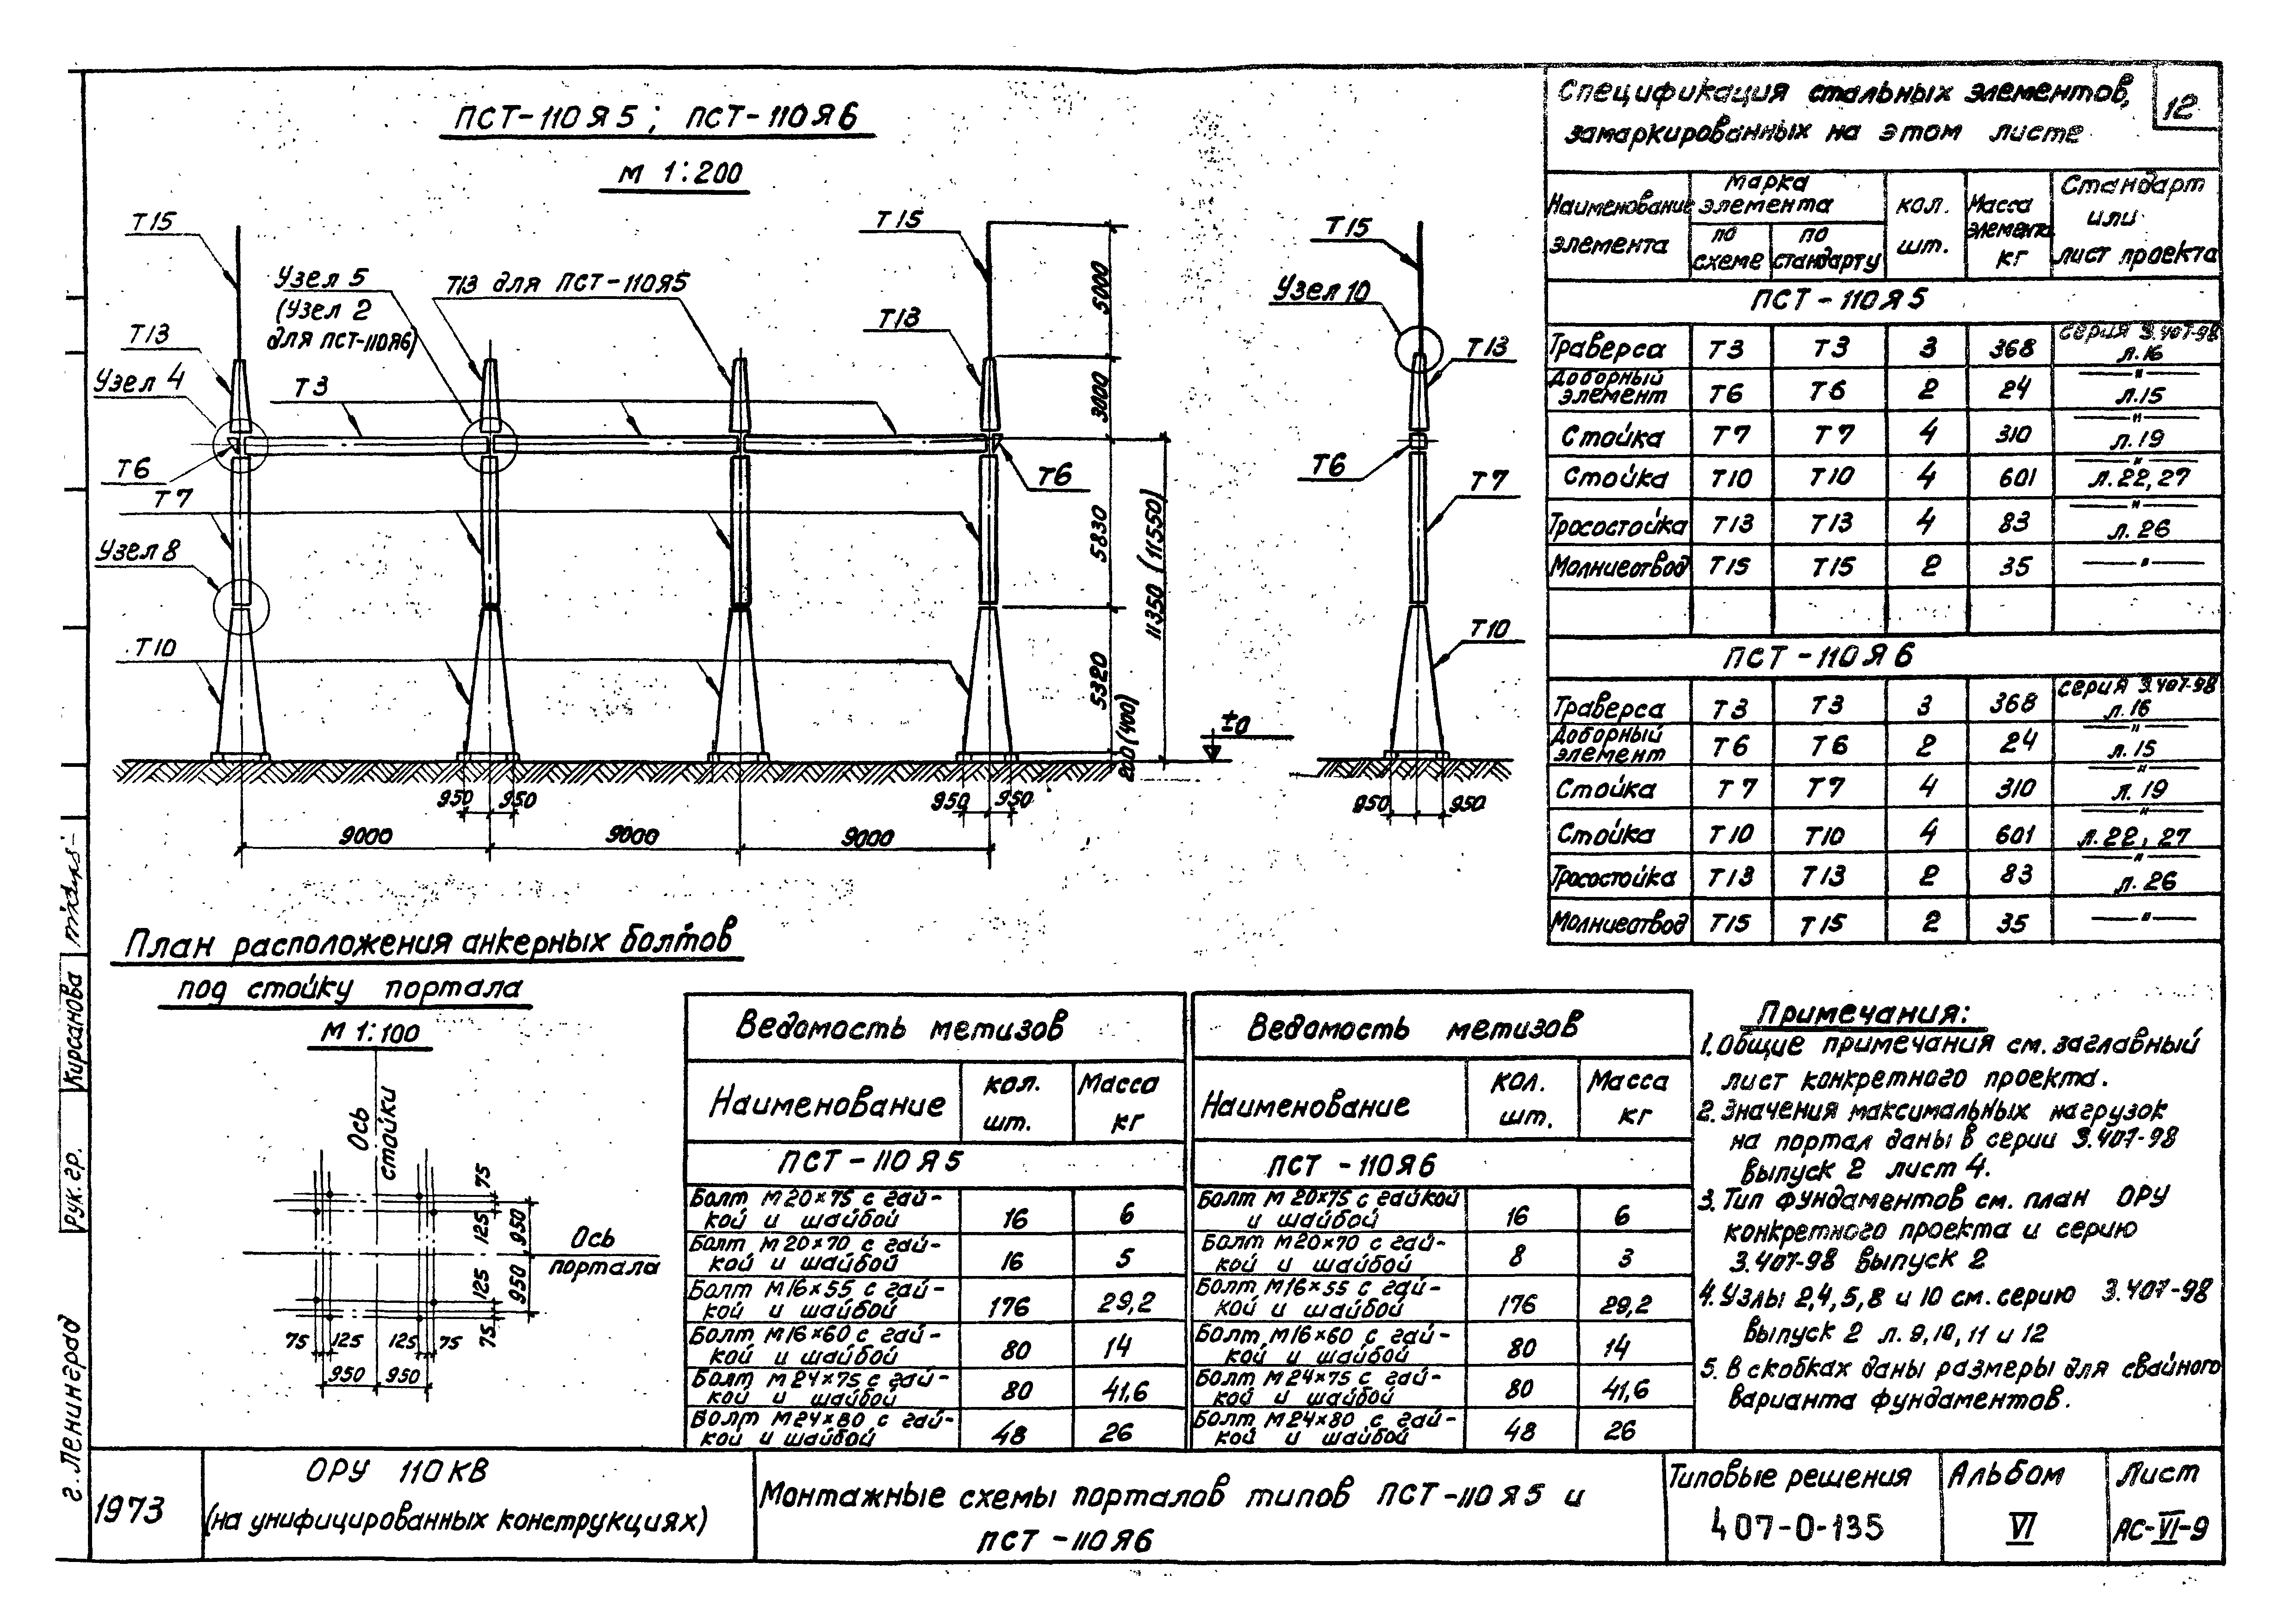 ПСТ-110Я5; ПСТ-110Я6
М 1:200
Т15
Т15
Т15
Узел 5
(Узел 2
для ПСТ-110Я6)
Т13 для ПСТ-110Я5
Т13
Т13
Узел 10
Т13
Узел 4
Т3
Т6
Т6
Т6
Т7
Т7
Узел 8
Т10
Т10
5000
3000
5830
5320
200 (400)
11350 (11550)
±0
950 950
950 950
950 950
9000 9000 9000
Спецификация стальных элементов,
замаркированных на этом листе
12
Наименование элемента | Марка элемента по схеме | по стандарту | кол. шт. | Масса элемента кг | Стандарт или лист проекта
ПСТ-110Я5
Траверса Т3 Т3 3 368 серия 3.407-98 л.16
Доборный элемент Т6 Т6 2 24 —"— л.15
Стойка Т7 Т7 4 310 —"— л.19
Стойка Т10 Т10 4 601 —"— л.22,27
Тросостойка Т13 Т13 4 83 —"— л.26
Молниеотвод Т15 Т15 2 35 —"—
ПСТ-110Я6
Траверса Т3 Т3 3 368 серия 3.407-98 л.16
Доборный элемент Т6 Т6 2 24 —"— л.15
Стойка Т7 Т7 4 310 —"— л.19
Стойка Т10 Т10 4 601 —"— л.22,27
Тросостойка Т13 Т13 2 83 —"— л.26
Молниеотвод Т15 Т15 2 35 —"—
План расположения анкерных болтов
под стойку портала
М 1:100
Ось стойки
Ось портала
75
125
950
950
125
75
75 125 125 75
950 950
Ведомость метизов
Наименование кол. шт. Масса кг
ПСТ-110Я5
Болт М20×75 с гай-
кой и шайбой 16 6
Болт М20×70 с гай-
кой и шайбой 16 5
Болт М16×55 с гай-
кой и шайбой 176 29,2
Болт М16×60 с гай-
кой и шайбой 80 14
Болт М24×75 с гай-
кой и шайбой 80 41,6
Болт М24×80 с гай-
кой и шайбой 48 26
Ведомость метизов
Наименование кол. шт. Масса кг
ПСТ-110Я6
Болт М20×75 с гайкой
и шайбой 16 6
Болт М20×70 с гай-
кой и шайбой 8 3
Болт М16×55 с гай-
кой и шайбой 176 29,2
Болт М16×60 с гай-
кой и шайбой 80 14
Болт М24×75 с гай-
кой и шайбой 80 41,6
Болт М24×80 с гай-
кой и шайбой 48 26
Примечания:
1. Общие примечания см. заглавный
лист конкретного проекта.
2. Значения максимальных нагрузок
на портал даны в серии 3.407-98
выпуск 2 лист 4.
3. Тип фундаментов см. план ОРУ
конкретного проекта и серию
3.407-98 выпуск 2
4. Узлы 2,4,5,8 и 10 см. серию 3.407-98
выпуск 2 л. 9,10,11 и 12
5. В скобках даны размеры для свайного
варианта фундаментов.
Рук. гр. Кирсанова
г. Ленинград
1973
ОРУ 110КВ
(на унифицированных конструкциях)
Монтажные схемы порталов типов ПСТ-110Я5 и
ПСТ-110Я6
Типовые решения
407-0-135
Альбом
VI
Лист
АС-VI-9